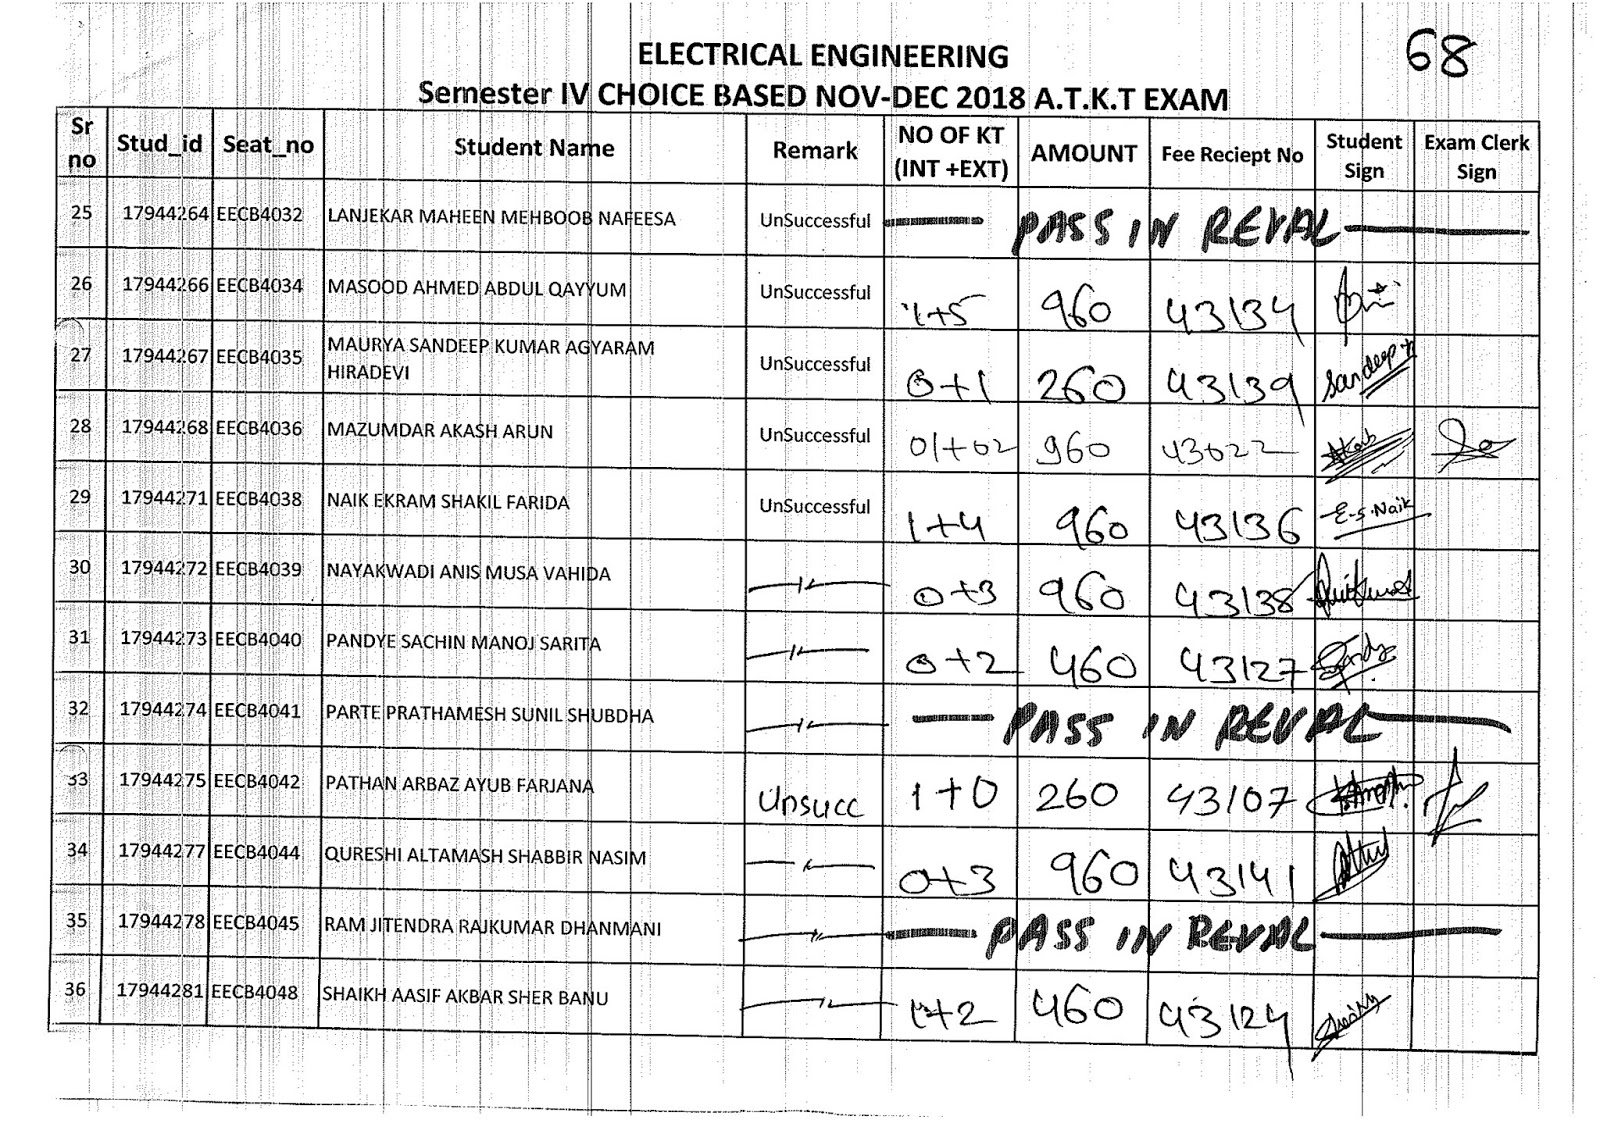 68
ELECTRICAL ENGINEERING
Semester IV CHOICE BASED NOV-DEC 2018 A.T.K.T EXAM
Sr no Stud_id Seat_no Student Name Remark NO OF KT (INT +EXT) AMOUNT Fee Reciept No Student Sign Exam Clerk Sign
25 17944264 EECB4032 LANJEKAR MAHEEN MEHBOOB NAFEESA UnSuccessful — PASS IN REVAL —
26 17944266 EECB4034 MASOOD AHMED ABDUL QAYYUM UnSuccessful 1+5 960 43134
27 17944267 EECB4035 MAURYA SANDEEP KUMAR AGYARAM HIRADEVI UnSuccessful 0+1 260 43139 Sandeep
28 17944268 EECB4036 MAZUMDAR AKASH ARUN UnSuccessful 01+02 960 43022 Akash
29 17944271 EECB4038 NAIK EKRAM SHAKIL FARIDA UnSuccessful 1+4 960 43136 E-S-Naik
30 17944272 EECB4039 NAYAKWADI ANIS MUSA VAHIDA —〃— 0+3 960 43138
31 17944273 EECB4040 PANDYE SACHIN MANOJ SARITA —〃— 0+2 460 43127
32 17944274 EECB4041 PARTE PRATHAMESH SUNIL SHUBDHA —〃— — PASS IN REVAL —
33 17944275 EECB4042 PATHAN ARBAZ AYUB FARJANA Unsucc 1+0 260 43107
34 17944277 EECB4044 QURESHI ALTAMASH SHABBIR NASIM —〃— 0+3 960 43141
35 17944278 EECB4045 RAM JITENDRA RAJKUMAR DHANMANI —〃— — PASS IN REVAL —
36 17944281 EECB4048 SHAIKH AASIF AKBAR SHER BANU —〃— 1+2 460 43124